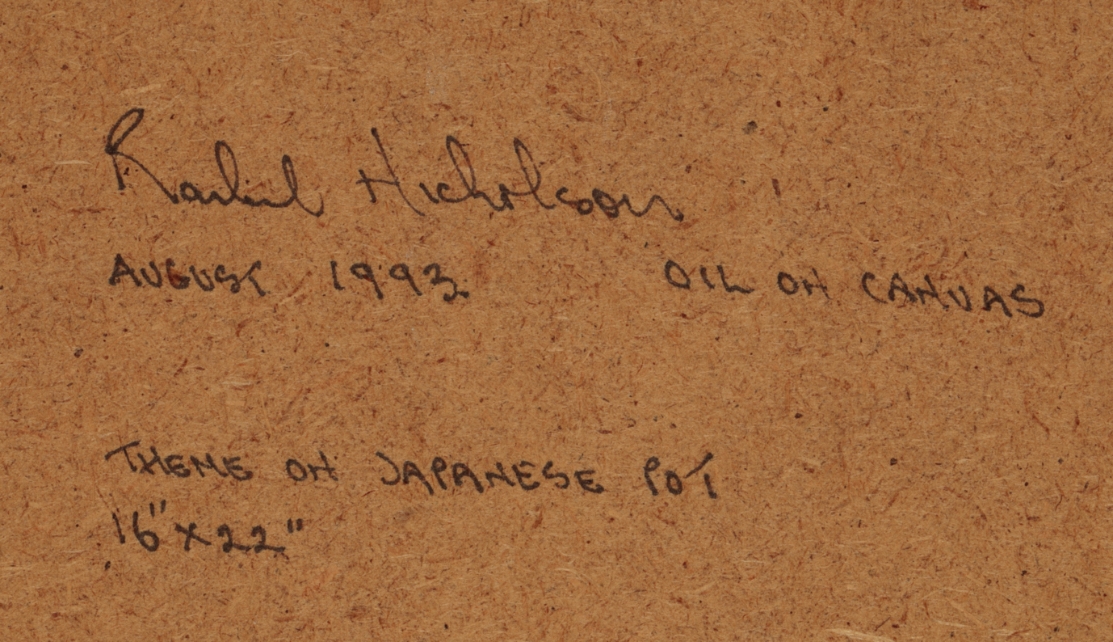 Rachel Nicholson
AUGUST 1993 OIL ON CANVAS
THEME ON JAPANESE POT
16" x 22"